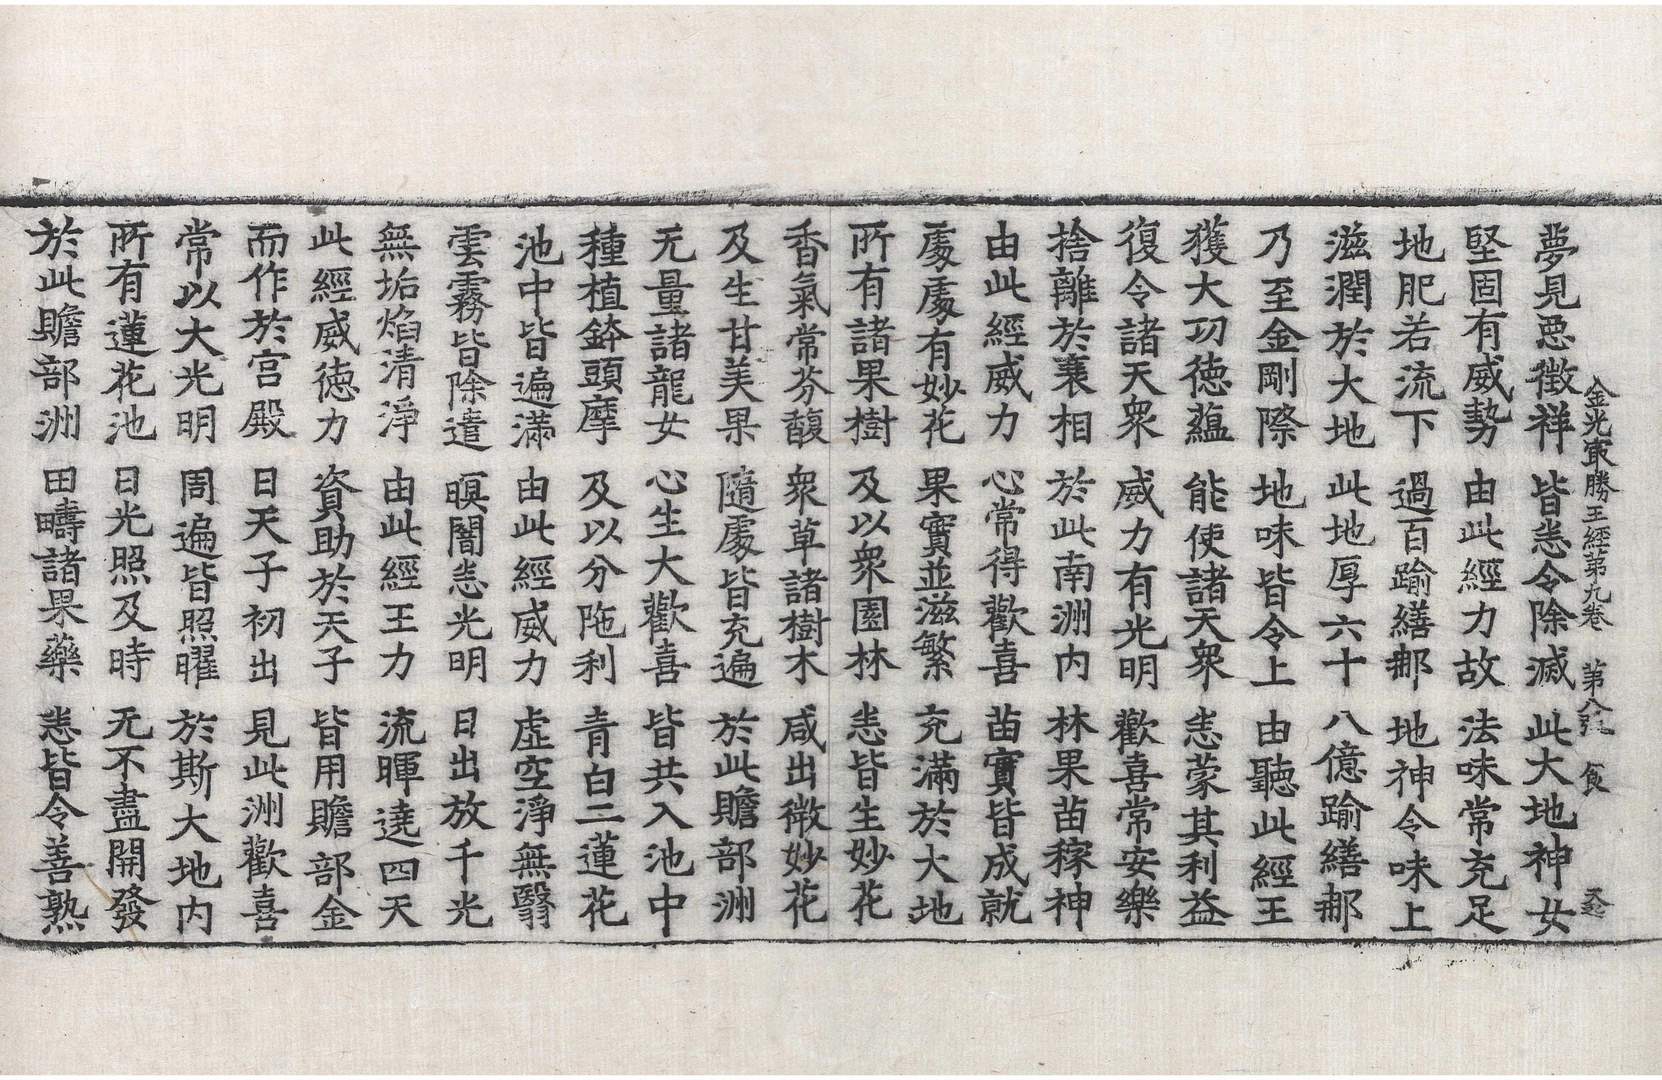 金光冣勝王經第九卷 第八張 食 天
夢見惡徵祥 皆悉令除滅 此大地神女
堅固有威勢 由此經力故 法味常充足
地肥若流下 過百踰繕那 地神令味上
滋潤於大地 此地厚六十 八億踰繕那
乃至金剛際 地味皆令上 由聽此經王
獲大功德蘊 能使諸天衆 悉蒙其利益
復令諸天衆 威力有光明 歡喜常安樂
捨離於衰相 於此南洲內 林果苗稼神
由此經威力 心常得歡喜 苗實皆成就
處處有妙花 果實並滋繁 充滿於大地
所有諸果樹 及以衆園林 悉皆生妙花
香氣常芬馥 衆草諸樹木 咸出微妙花
及生甘美果 隨處皆充遍 於此贍部洲
无量諸龍女 心生大歡喜 皆共入池中
種植鉢頭摩 及以分陁利 青白二蓮花
池中皆遍滿 由此經威力 虛空淨無翳
雲霧皆除遣 暝闇悉光明 日出放千光
無垢焰清淨 由此經王力 流暉遶四天
此經威德力 資助於天子 皆用贍部金
而作於宮殿 日天子初出 見此洲歡喜
常以大光明 周遍皆照曜 於斯大地內
所有蓮花池 日光照及時 无不盡開發
於此贍部洲 田疇諸果藥 悉皆令善熟